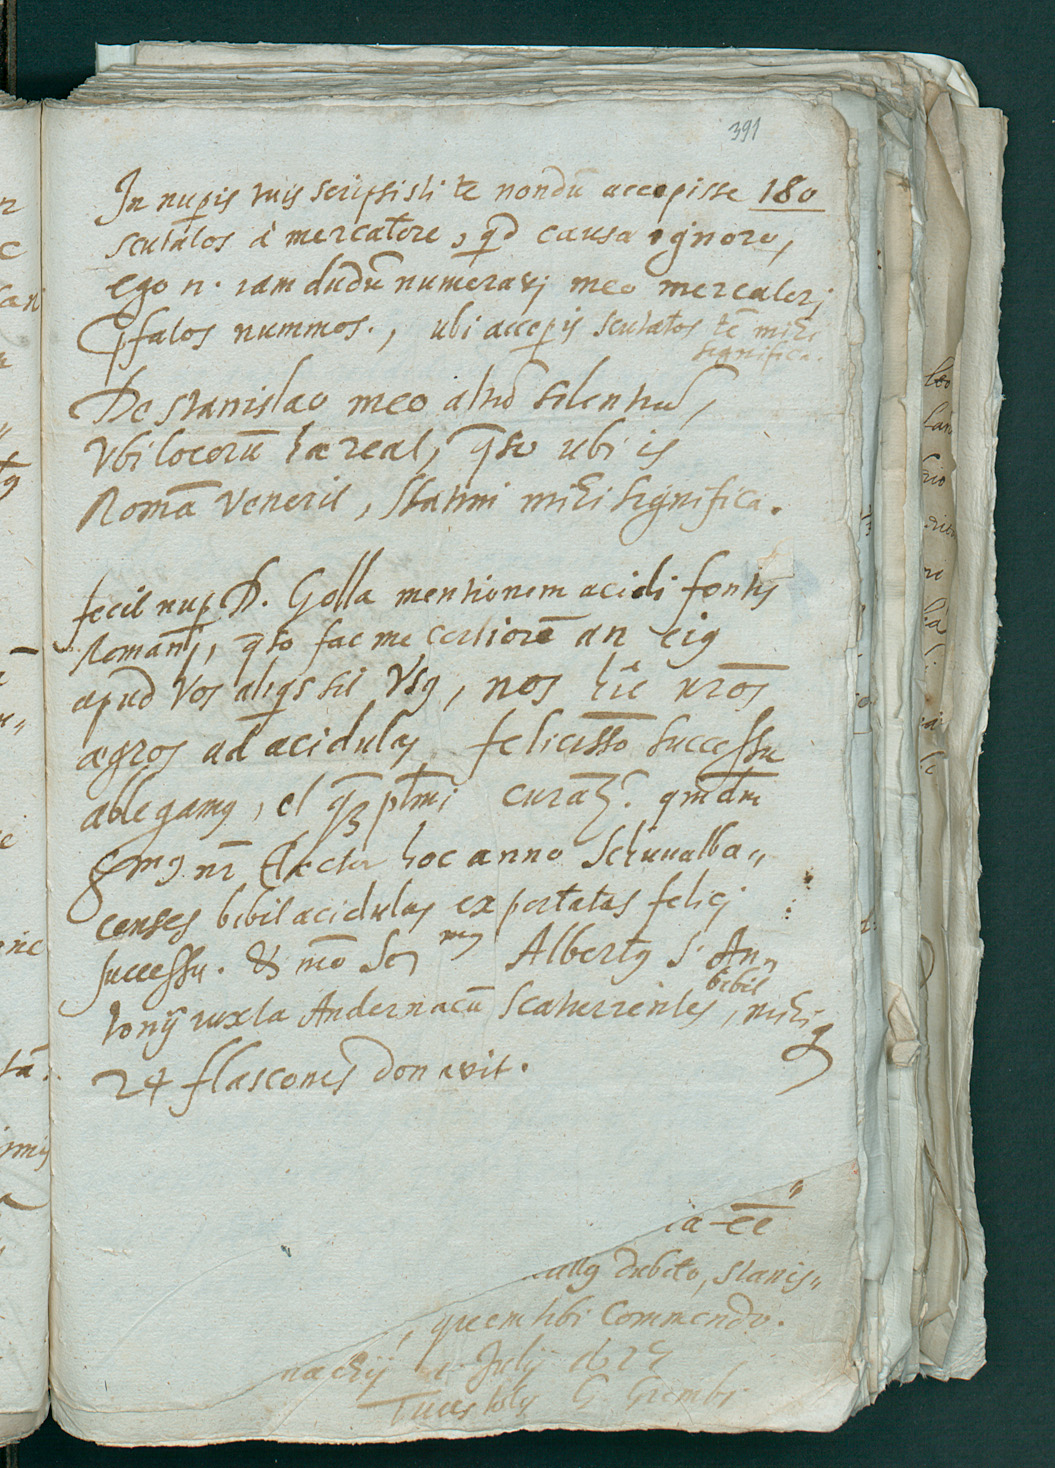 391
In nuperis tuis scripsisti te nondū accepisse 180
scutatos à mercatore, qd causa ignoro,
ego n. iam dudū numeravj meo mercatorj
pfatos nummos., ubi acceperis scutatos tē mihi
significa.
De stanislao meo altū silentiū,
Vbi locorū haereat, qso ubi is
Romā venerit, statim mihi significa.
fecit nup D. Golla mentionem acidi fontis
Romanj, qso fac me certiorē an eius
apud vos aliqs sit vsus, nos hīc nros
aegros ad acidulas felicisso successu
ablegamus, et plmi curat. qmadm
nr Elector hoc anno Schwalba„
censes bibit acidulas exportatas felicj
successu. & mō Ser mus Albertus S. An„
bibit
tonij iuxta Andernacū scaturrientes, mihiq
24 flascones donavit.
ia eē
dubito, Stanis„
quem tibi commendo.
nachij Julij
Tuus totus G